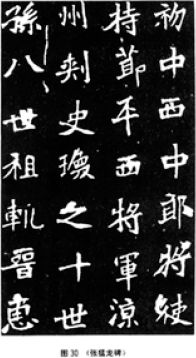 初中西中郎將使
持節平西將軍涼
州刾史瓊之十世
孫八世祖軌晉惠
图30 《张猛龙碑》